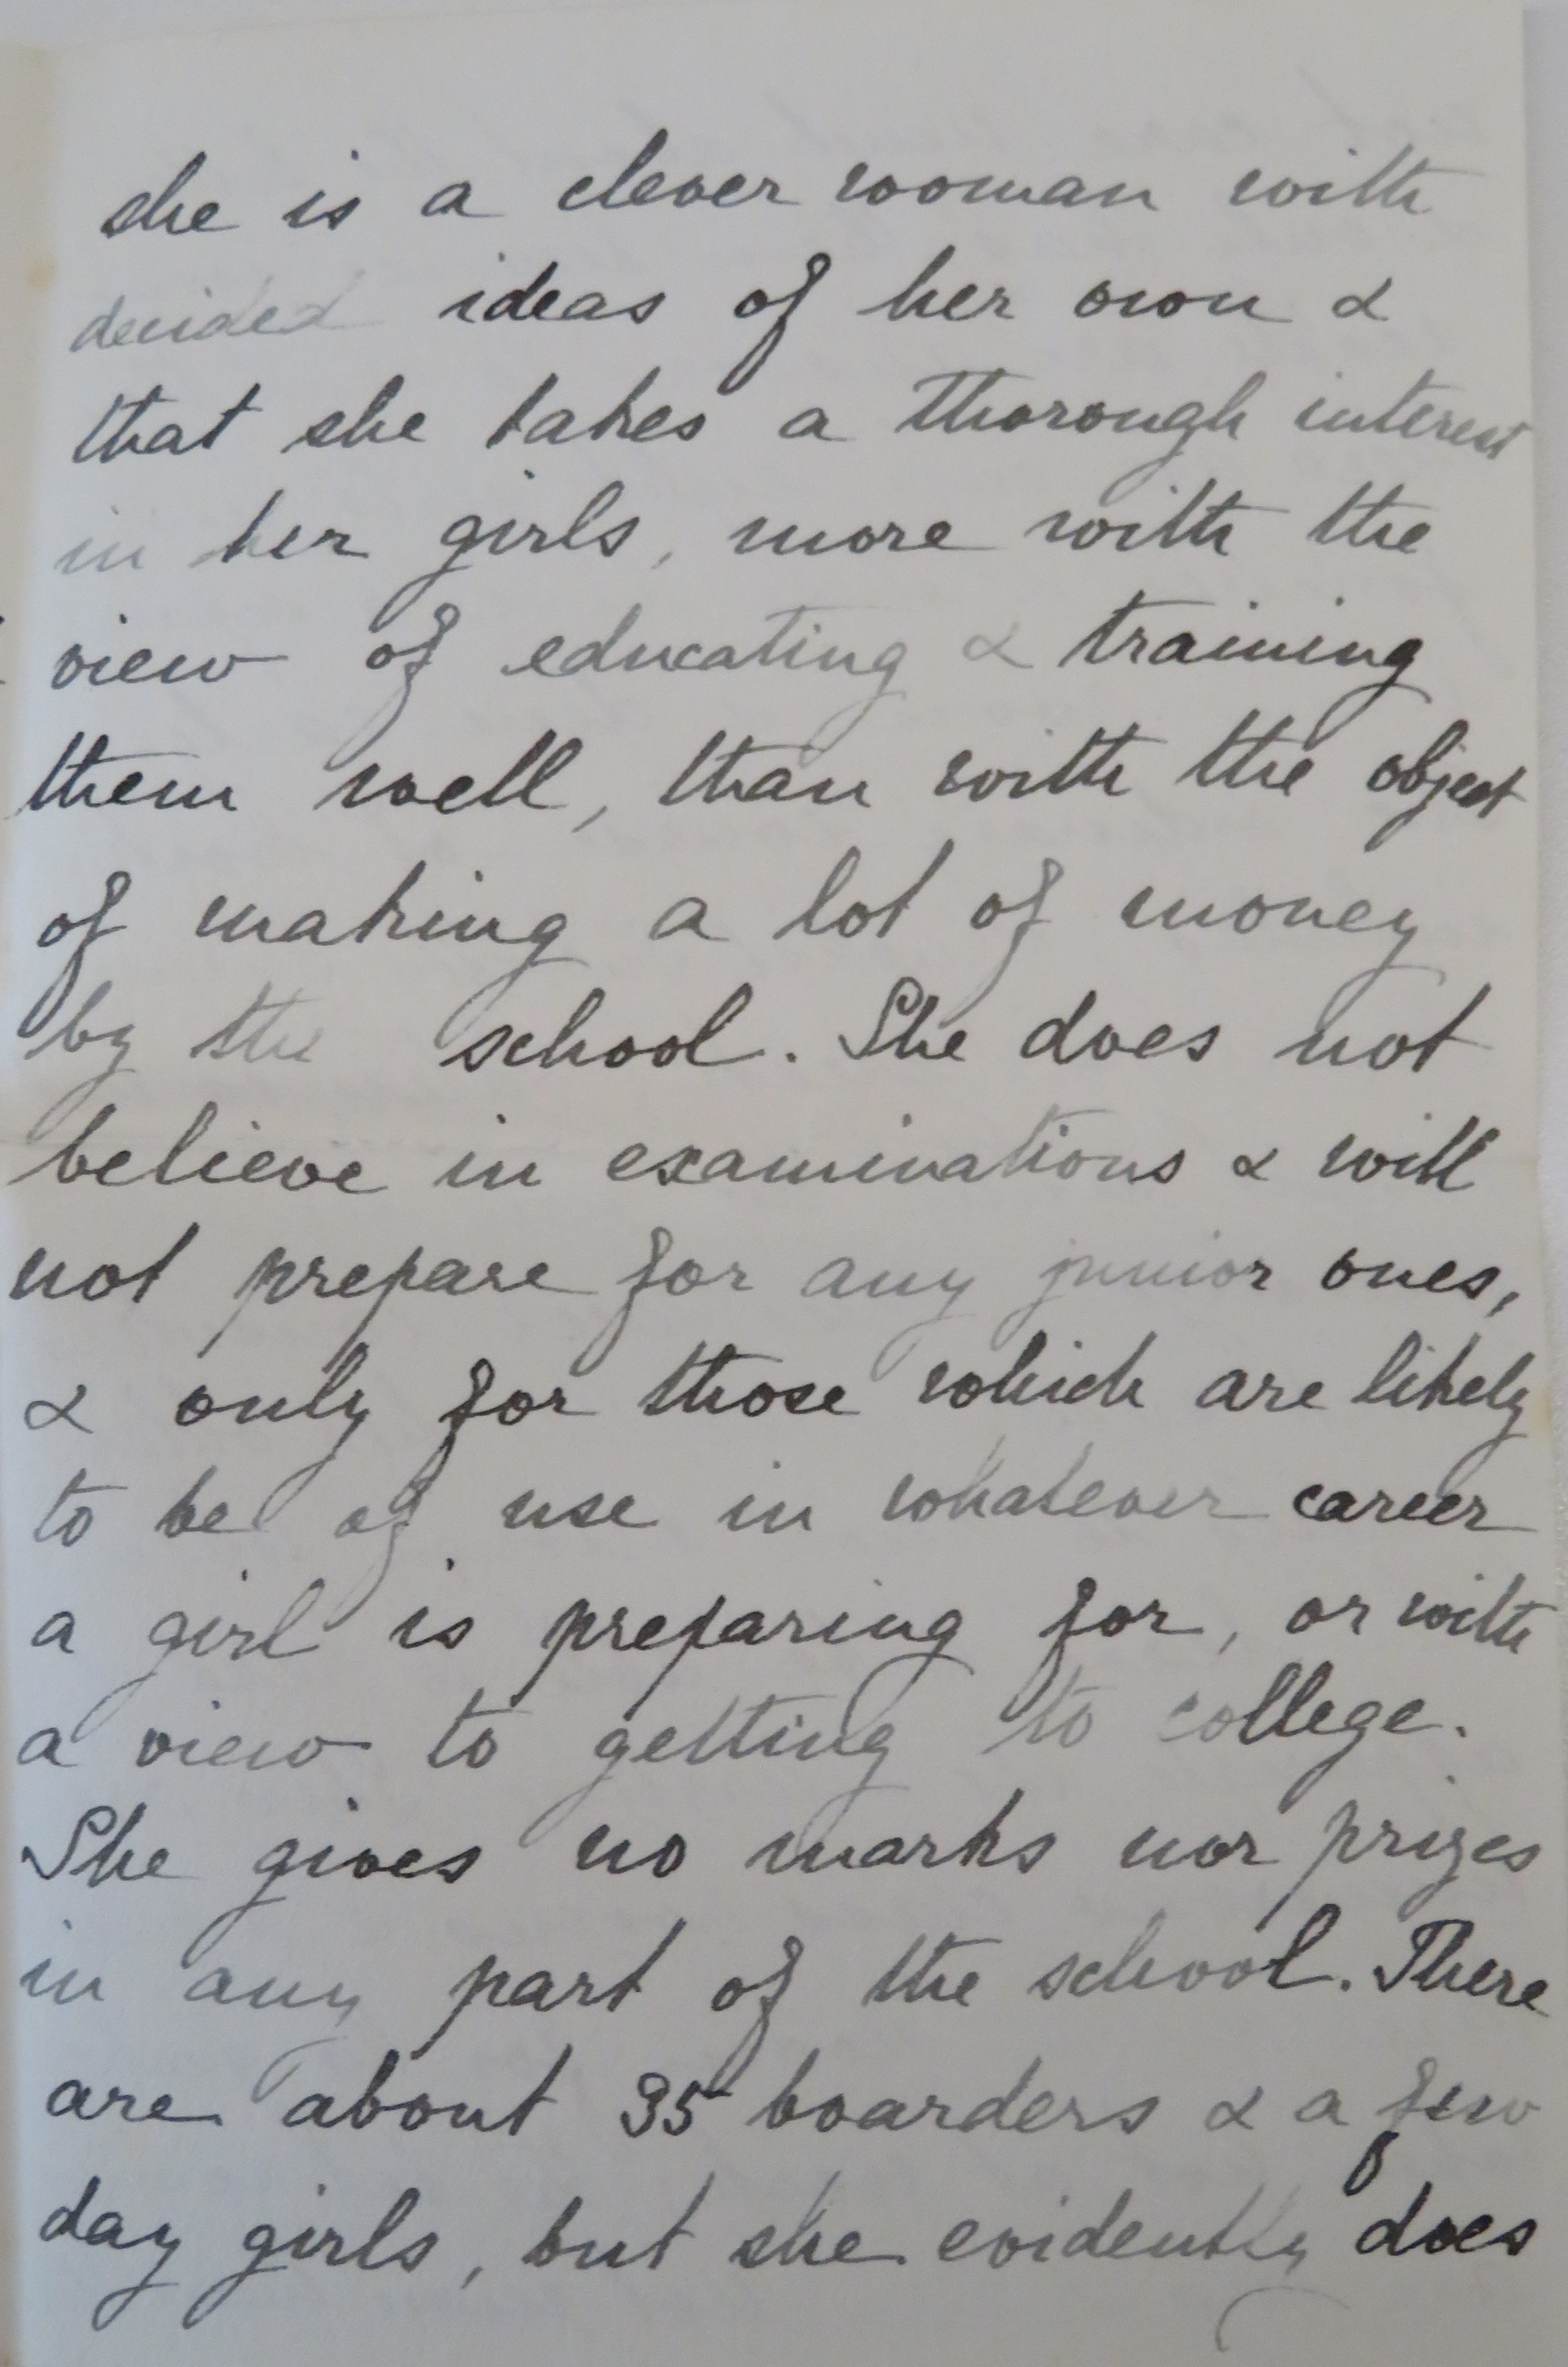 she is a clever woman with
decided ideas of her own &
that she takes a thorough interest
in her girls, more with the
view of educating & training
them well, than with the object
of making a lot of money
by the school. She does not
believe in examinations & will
not prepare for any junior ones,
& only for those which are likely
to be of use in whatever career
a girl is preparing for, or with
a view to getting to college.
She gives no marks nor prizes
in any part of the school. There
are about 35 boarders & a few
day girls, but she evidently does